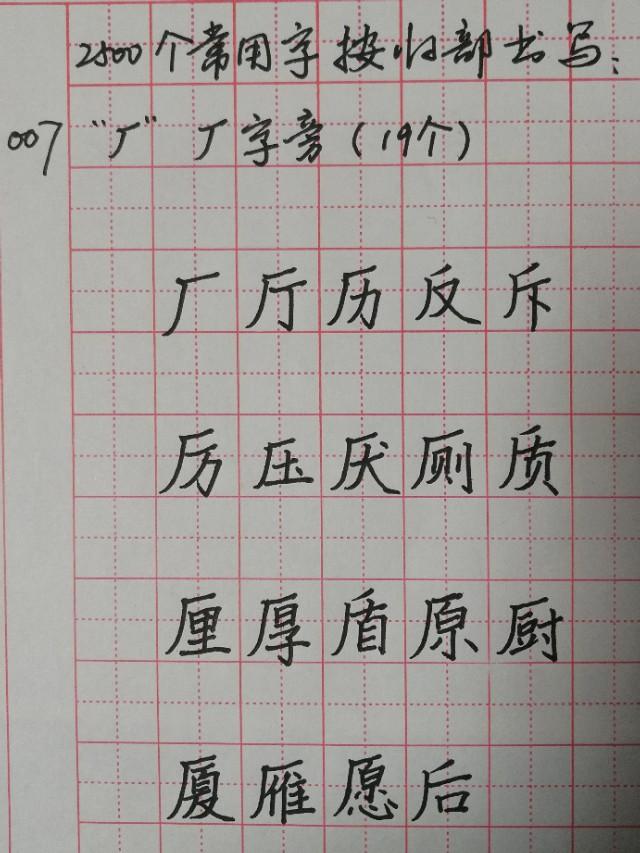 2500个常用字按归部书写：
007 “厂” 厂字旁（19个）
厂厅历反斥
厉压厌厕质
厘厚盾原厨
厦雁愿后